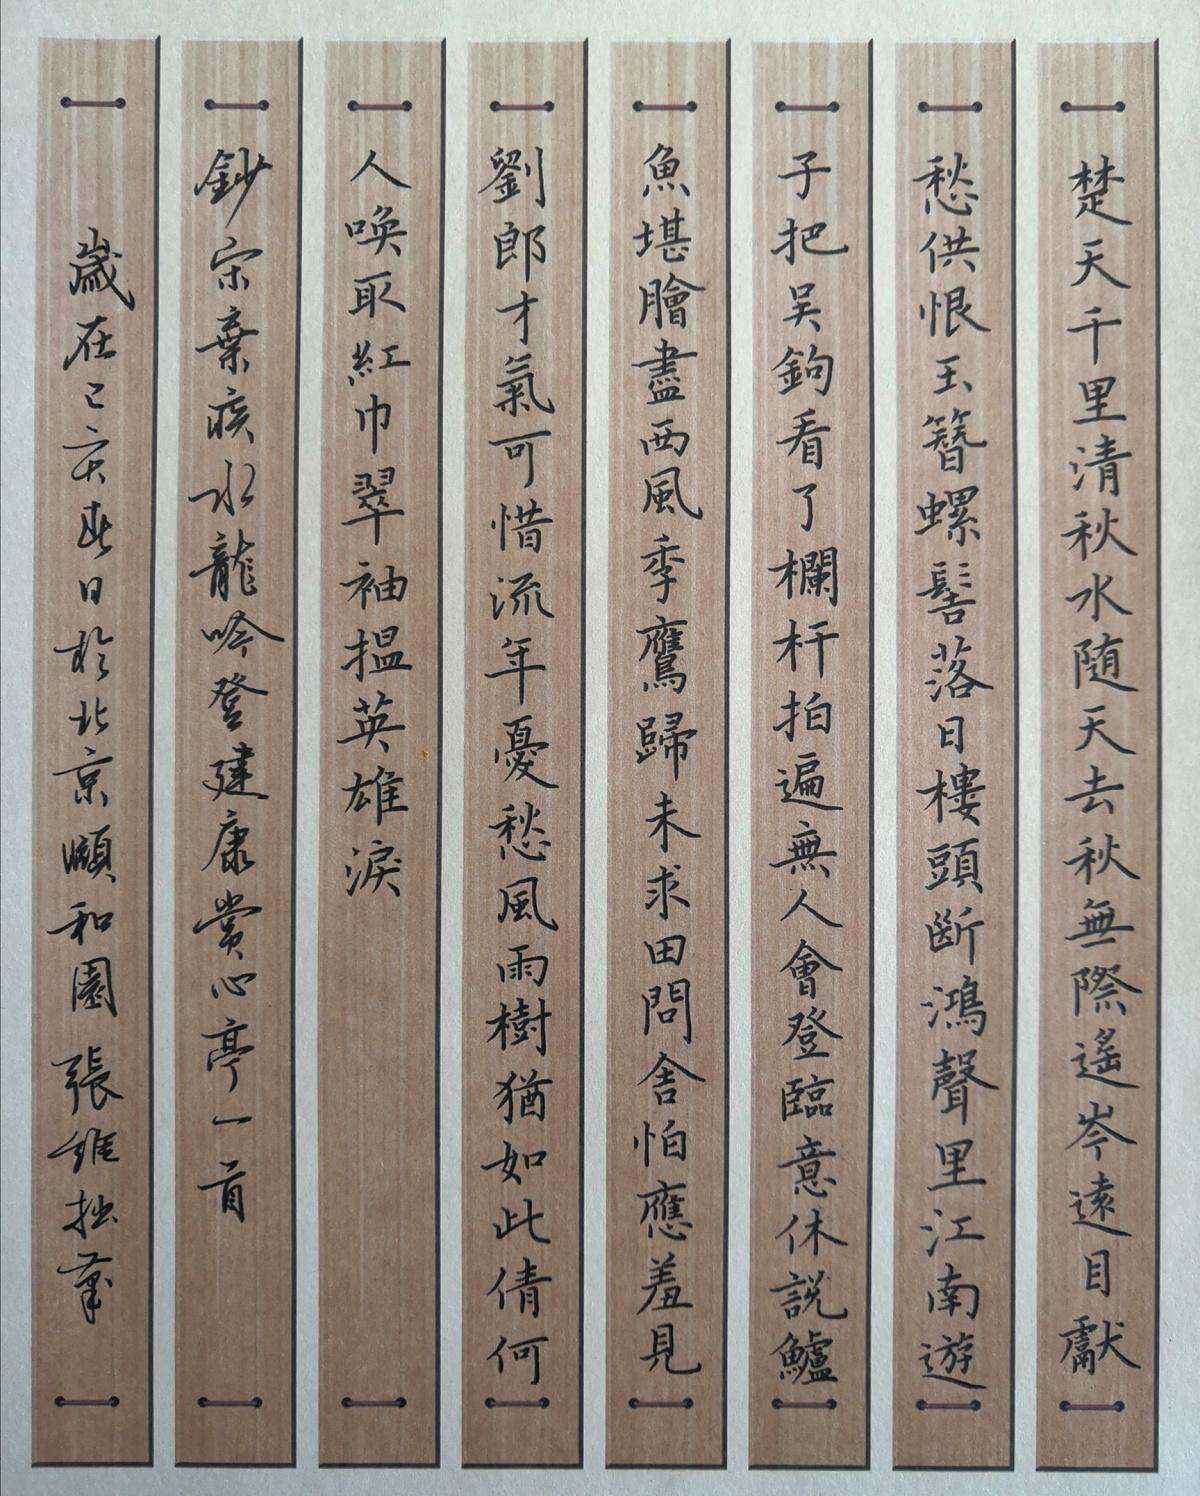 楚天千里清秋水随天去秋無際遥岑遠目獻
愁供恨玉簪螺髻落日樓頭斷鴻聲里江南遊
子把吴鉤看了欄杆拍遍無人會登臨意休説鱸
魚堪膾盡西風季鷹歸未求田問舍怕應羞見
劉郎才氣可惜流年憂愁風雨樹猶如此倩何
人唤取紅巾翠袖揾英雄淚
鈔宋棄疾水龍吟登建康賞心亭一首
歲在己亥春日於北京頤和園 張維拙筆